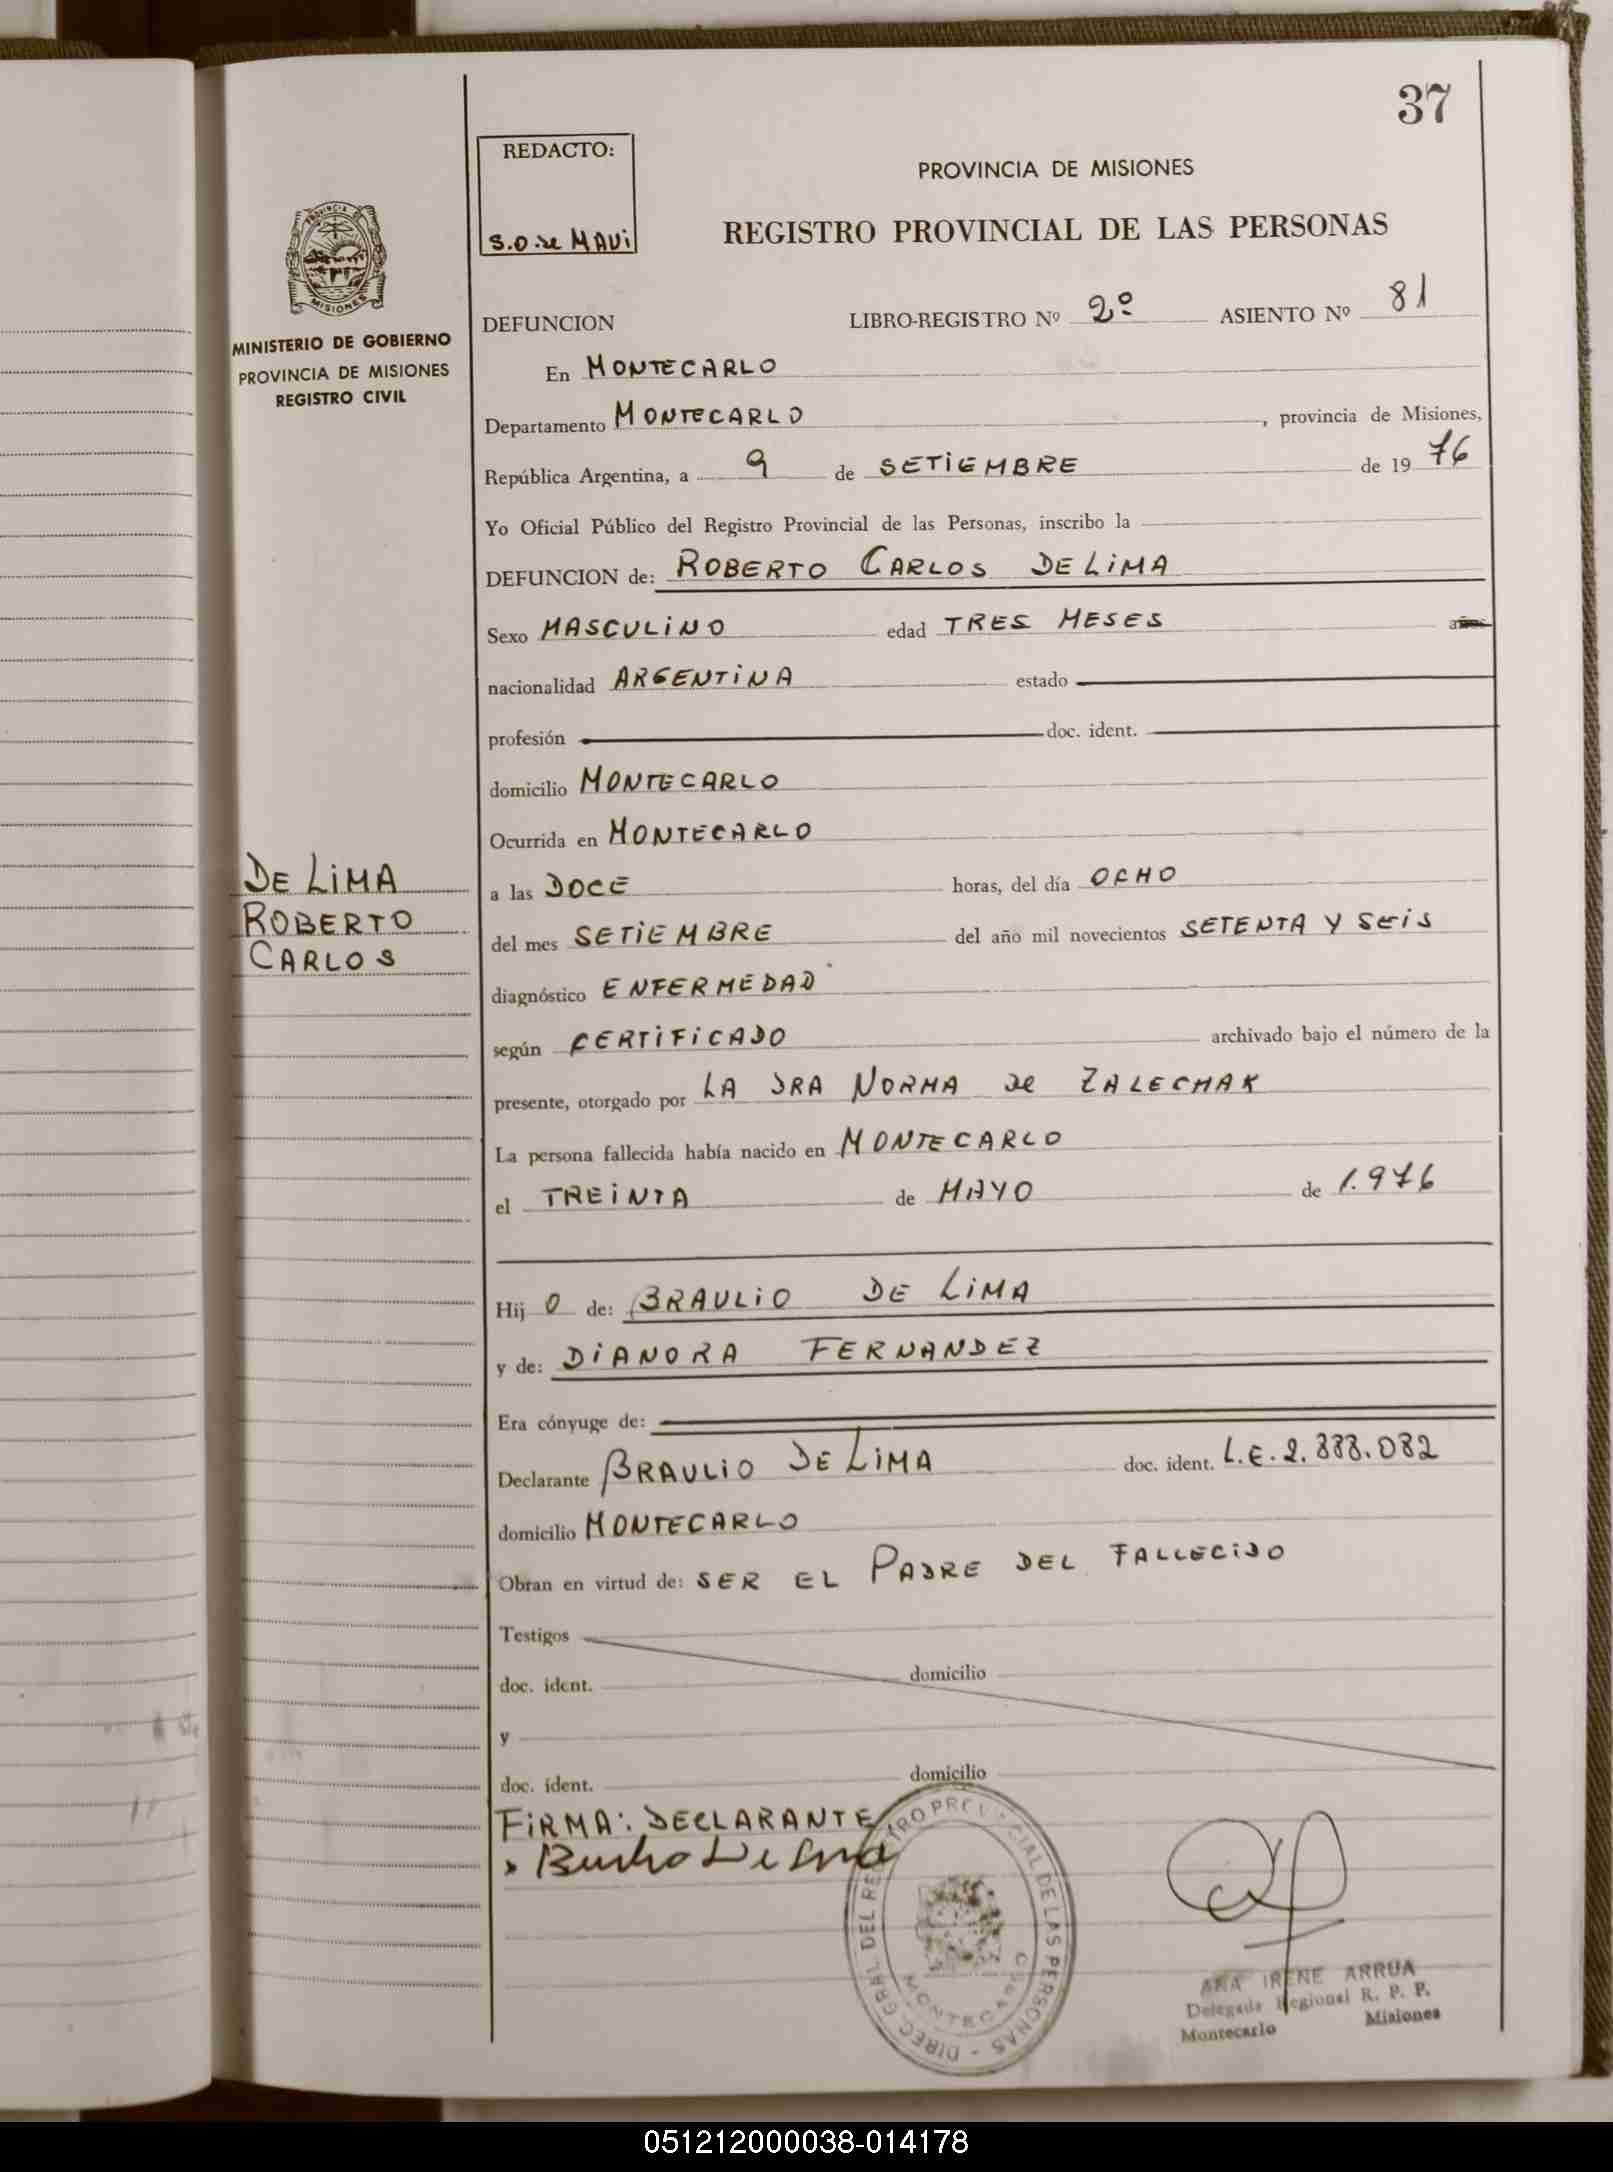 37
REDACTO:
S.O. de MAUi
PROVINCIA DE MISIONES
REGISTRO PROVINCIAL DE LAS PERSONAS
PROVINCIA DE
MISIONES
MINISTERIO DE GOBIERNO
PROVINCIA DE MISIONES
REGISTRO CIVIL
DEFUNCION LIBRO-REGISTRO Nº 2º ASIENTO Nº 81
En MONTECARLO
Departamento MONTECARLO, provincia de Misiones,
República Argentina, a 9 de SETiEMBRE de 1976
Yo Oficial Público del Registro Provincial de las Personas, inscribo la
DEFUNCION de: ROBERTO CARLOS DE LiMA
Sexo MASCULiNO edad TRES MESES años
nacionalidad ARGENTiNA estado
profesión doc. ident.
domicilio MONTECARLO
Ocurrida en MONTECARLO
DE LiMA
ROBERTO
CARLOS
a las DOCE horas, del día OCHO
del mes SETiEMBRE del año mil novecientos SETENTA Y SEiS
diagnóstico ENFERMEDAD
según CERTiFiCADO archivado bajo el número de la
presente, otorgado por LA DRA NORMA de ZALECHAK
La persona fallecida había nacido en MONTECARLO
el TREiNTA de MAYO de 1.976
Hij O de: BRAULiO DE LiMA
y de: DiANORA FERNANDEZ
Era cónyuge de:
Declarante BRAULIO DE LiMA doc. ident. L.E. 2.888.082
domicilio MONTECARLO
Obran en virtud de: SER EL PADRE DEL FALLECIDO
Testigos
doc. ident. domicilio
y
doc. ident. domicilio
FiRMA: DECLARANTE
DIREC. GRAL. DEL REGISTRO PROVINCIAL DE LAS PERSONAS -
MONTECARLO
ANA IRENE ARRUA
Delegada Regional R. P. P.
Montecarlo Misiones
051212000038-014178